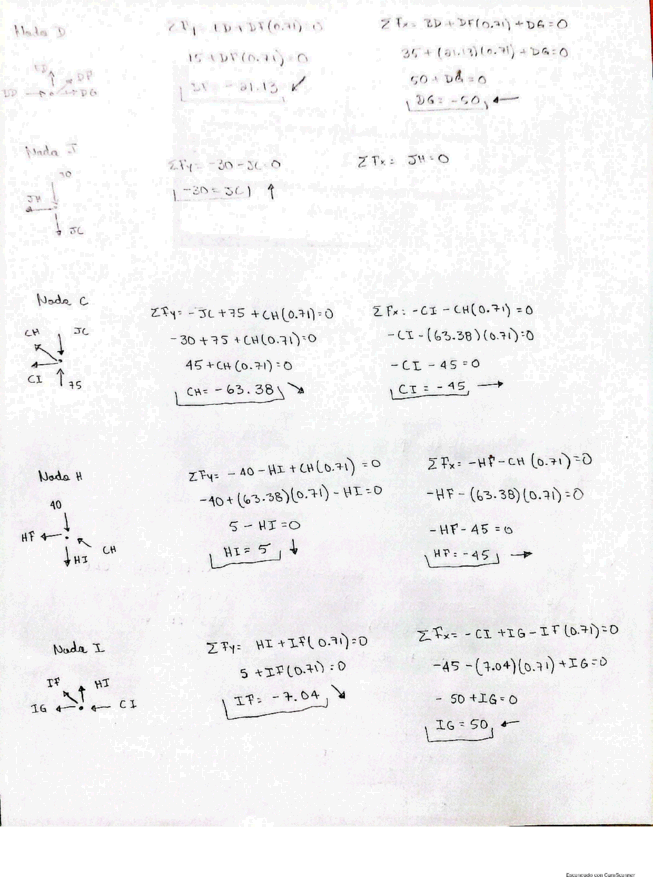 Nodo D
ΣFy = ED + DF(0.71) = 0
15 + DF(0.71) = 0
DF = -21.13 ↙
ΣFx = BD + DF(0.71) + DG = 0
35 + (21.13)(0.71) + DG = 0
50 + DG = 0
DG = -50 ←
DF
DG
Nodo J
30
JH
JC
ΣFy = -30 - JC = 0
-30 = JC ↑
ΣFx = JH = 0
Nodo C
CH
JC
CI
75
ΣFy = -JC + 75 + CH(0.71) = 0
-30 + 75 + CH(0.71) = 0
45 + CH(0.71) = 0
CH = -63.38 ↘
ΣFx: -CI - CH(0.71) = 0
-CI - (63.38)(0.71) = 0
-CI - 45 = 0
CI = -45 →
Nodo H
40
HF
CH
HI
ΣFy = -40 - HI + CH(0.71) = 0
-40 + (63.38)(0.71) - HI = 0
5 - HI = 0
HI = 5 ↓
ΣFx = -HF - CH (0.71) = 0
-HF - (63.38)(0.71) = 0
-HF - 45 = 0
HF = -45 →
Nodo I
IF
HI
IG
CI
ΣFy = HI + IF(0.71) = 0
5 + IF(0.71) = 0
IF = -7.04 ↘
ΣFx = -CI + IG - IF(0.71) = 0
-45 - (7.04)(0.71) + IG = 0
- 50 + IG = 0
IG = 50 ←
Escaneado con CamScanner